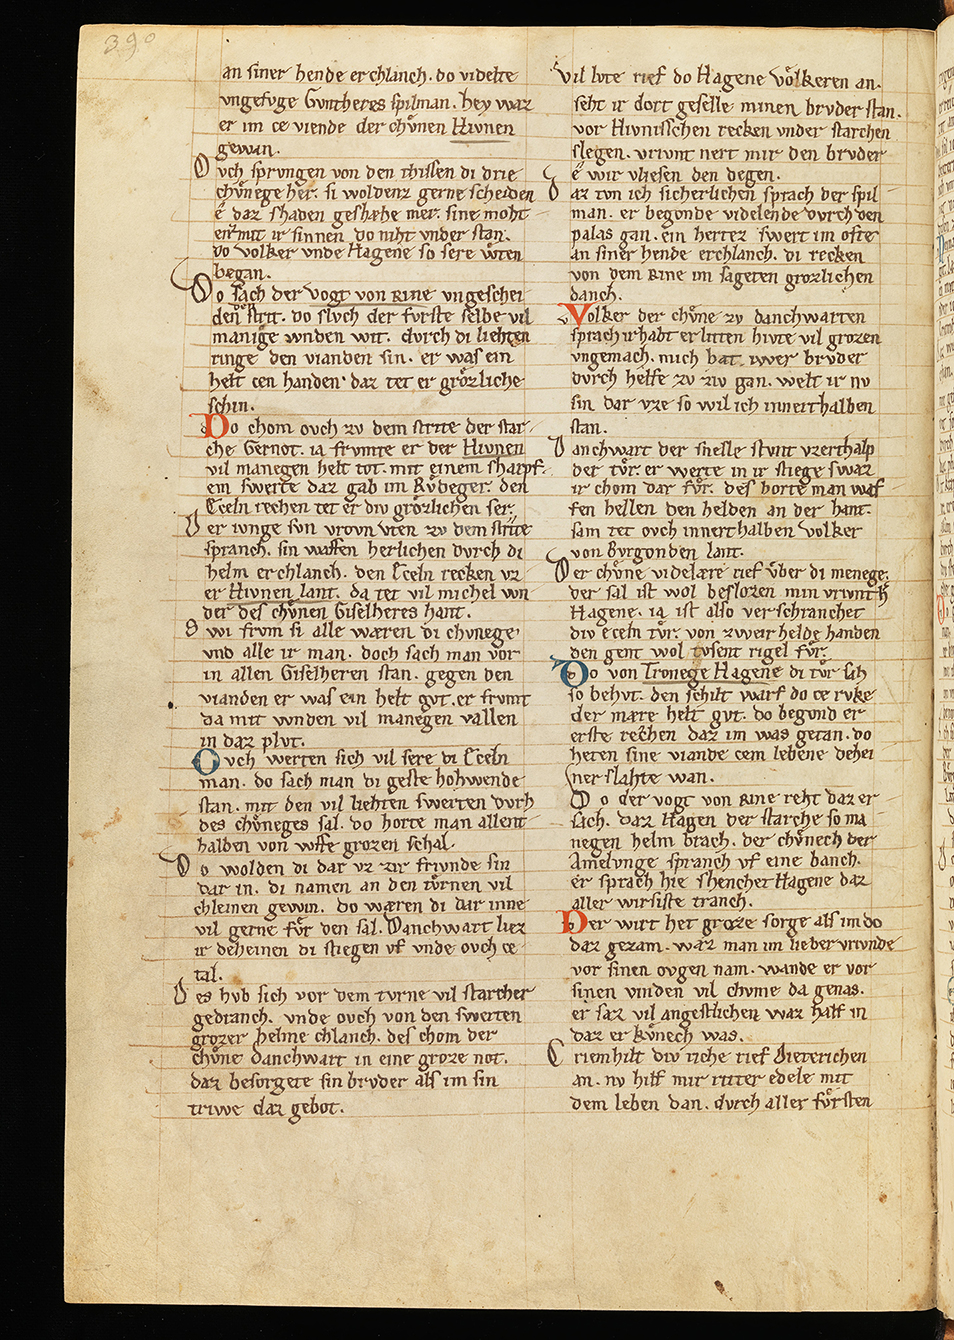 390
an siner hende erchlanch. do videlte
vngefvge Gvntheres spilman. hey waz
er im ce viende der chv̊nen Hivnen
gewan.
Ovch sprvngen von den thissen di drie
chv̊nege her. si woldenz gerne scheiden
é daz shaden geshæhe mer. sine moht
en mit ir sinnen do niht vnder stan.
do volker vnde Hagene so sere wͦten
began.
Do sach der vogt von Rine vngeschei
den strit. do slvch der fvrste selbe vil
manige wnden wit. dvrch di liehten
ringe den vianden sin. er was ein
helt cen handen. daz tet er grozliche
schin.
Do chom ovch zv dem strite der star
che Gernot. ia frvmte er der Hivnen
vil manegen helt tot. mit einem sharpf
em swerte daz gab im Rv̊deger. den
Eceln rechen tet er div grozlichen ser.
Der ivnge svn vrovn vten zv dem strite
spranch. sin waffen herlichen dvrch di
helm erchlanch. den Eceln recken vz
er Hivnen lant. da tet vil michel wn
der des chv̊nen Giselheres hant.
Swi frvm si alle wæren di chvnege
vnd alle ir man. doch sach man vor
in allen Giselheren stan. gegen den
vianden er was ein helt gvt. er frvmt
da mit wnden vil manegen vallen
in daz plvt.
Ovch werten sich vil sere di Eceln
man. do sach man di geste hohwende
stan. mit den vil liehten swerten dvrh
des chv̊neges sal. do horte man allent
halben von wffe grozen schal.
Do wolden di dar vz zir frivnde sin
dar in. di namen an den tv̊rnen vil
chleinen gewin. do wæren di dar inne
vil gerne fv̊r den sal. Danchwart liez
ir deheinen di stiegen vf vnde ovch ce
tal.
Des hvb sich vor dem tvrne vil starcher
gedranch. vnde ovch von den swerten
grozer helme chlanch. des chom der
chv̊ne danchwart in eine groze not.
daz besorgete sin brvder als im sin
triwe daz gebot.
Vil lvte rief do Hagene Volkeren an.
seht ir dort geselle minen brvder stan.
vor Hivnisschen recken vnder starchen
slegen. vrivnt nert mir den brvder
é wir vliesen den degen.
Daz tvn ich sicherlichen sprach der spil
man. er begonde videlende dvrch den
palas gan. ein hertez swert im ofte
an siner hende erchlanch. di recken
von dem Rine im sageten grozlichen
danch.
Volker der chv̊ne zv danchwarten
sprach ir habt erlitten hivte vil grozen
vngemach. mich bat iwer brvder
dvrch helfe zv ziv gan. welt ir nv
sin dar vze so wil ich innerthalben
stan.
Danchwart der snelle stvnt vzerthalp
der tv̊r. er werte in ir stiege swaz
ir chom dar fv̊r. des horte man waf
fen hellen den helden an der hant.
sam tet ovch innerthalben Volker
von Bvrgonden lant.
Der chv̊ne videlære rief v̊ber di menege.
der sal ist wol beslozen min vrivnt
Hagene. ia ist also verschranchet
div eceln tv̊r. von zweir helde handen
den gent wol tvsent rigel fv̊r.
Do von Tronege Hagene di tv̊r sah
so behvt. den schilt warf do ce rvke
der mære helt gvt. do begvnd er
erste rechen daz im was getan. do
heten sine viande cem lebene dehei
ner slahte wan.
Do der vogt von Rine reht daz er
sach. daz Hagen der starche so ma
negen helm brach. der chv̊nech der
Amelvnge spranch vf eine banch.
er sprach hie shenchet Hagene daz
aller wirsiste tranch.
Der wirt het groze sorge als im do
daz gezam. waz man im lieber vrivnde
vor sinen ovgen nam. wande er vor
sinen vinden vil chvme da genas.
er saz vil angestlichen waz half in
daz er kv̊nech was.
Criemhilt div riche rief Dieterichen
an. nv hilf mir ritter edele mit
dem leben dan. dvrch aller fv̊rsten